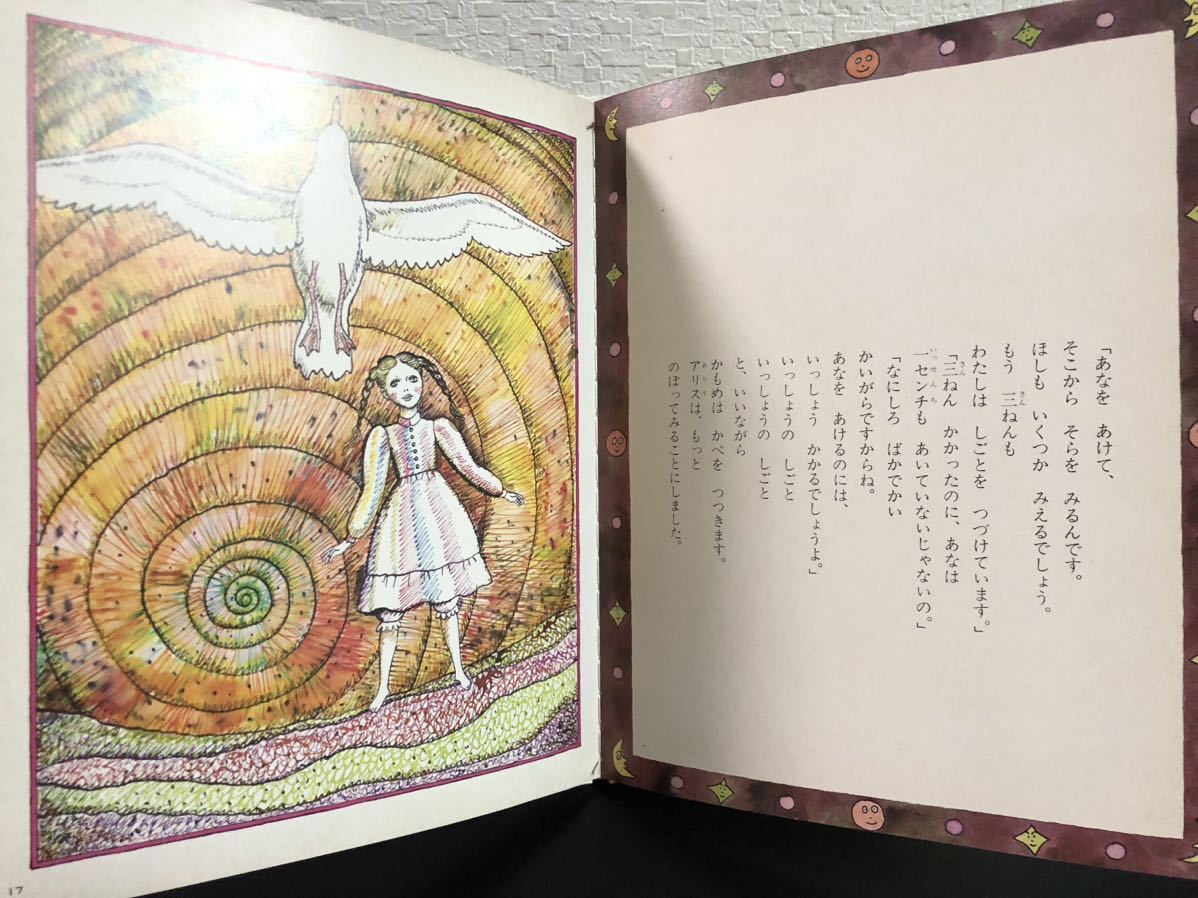 「あなを　あけて、
そこから　そらを　みるんです。
ほしも　いくつか　みえるでしょう。
もう　三ねんも
わたしは　しごとを　つづけています。」
「三ねん　かかったのに、あなは
一センチも　あいていないじゃないの。」
「なにしろ　ばかでかい
かいがらですからね。
あなを　あけるのには、
いっしょう　かかるでしょうよ。」
いっしょうの　しごと
いっしょうの　しごと
と、いいながら
かもめは　かべを　つつきます。
アリスは、もっと
のぼってみることにしました。
17